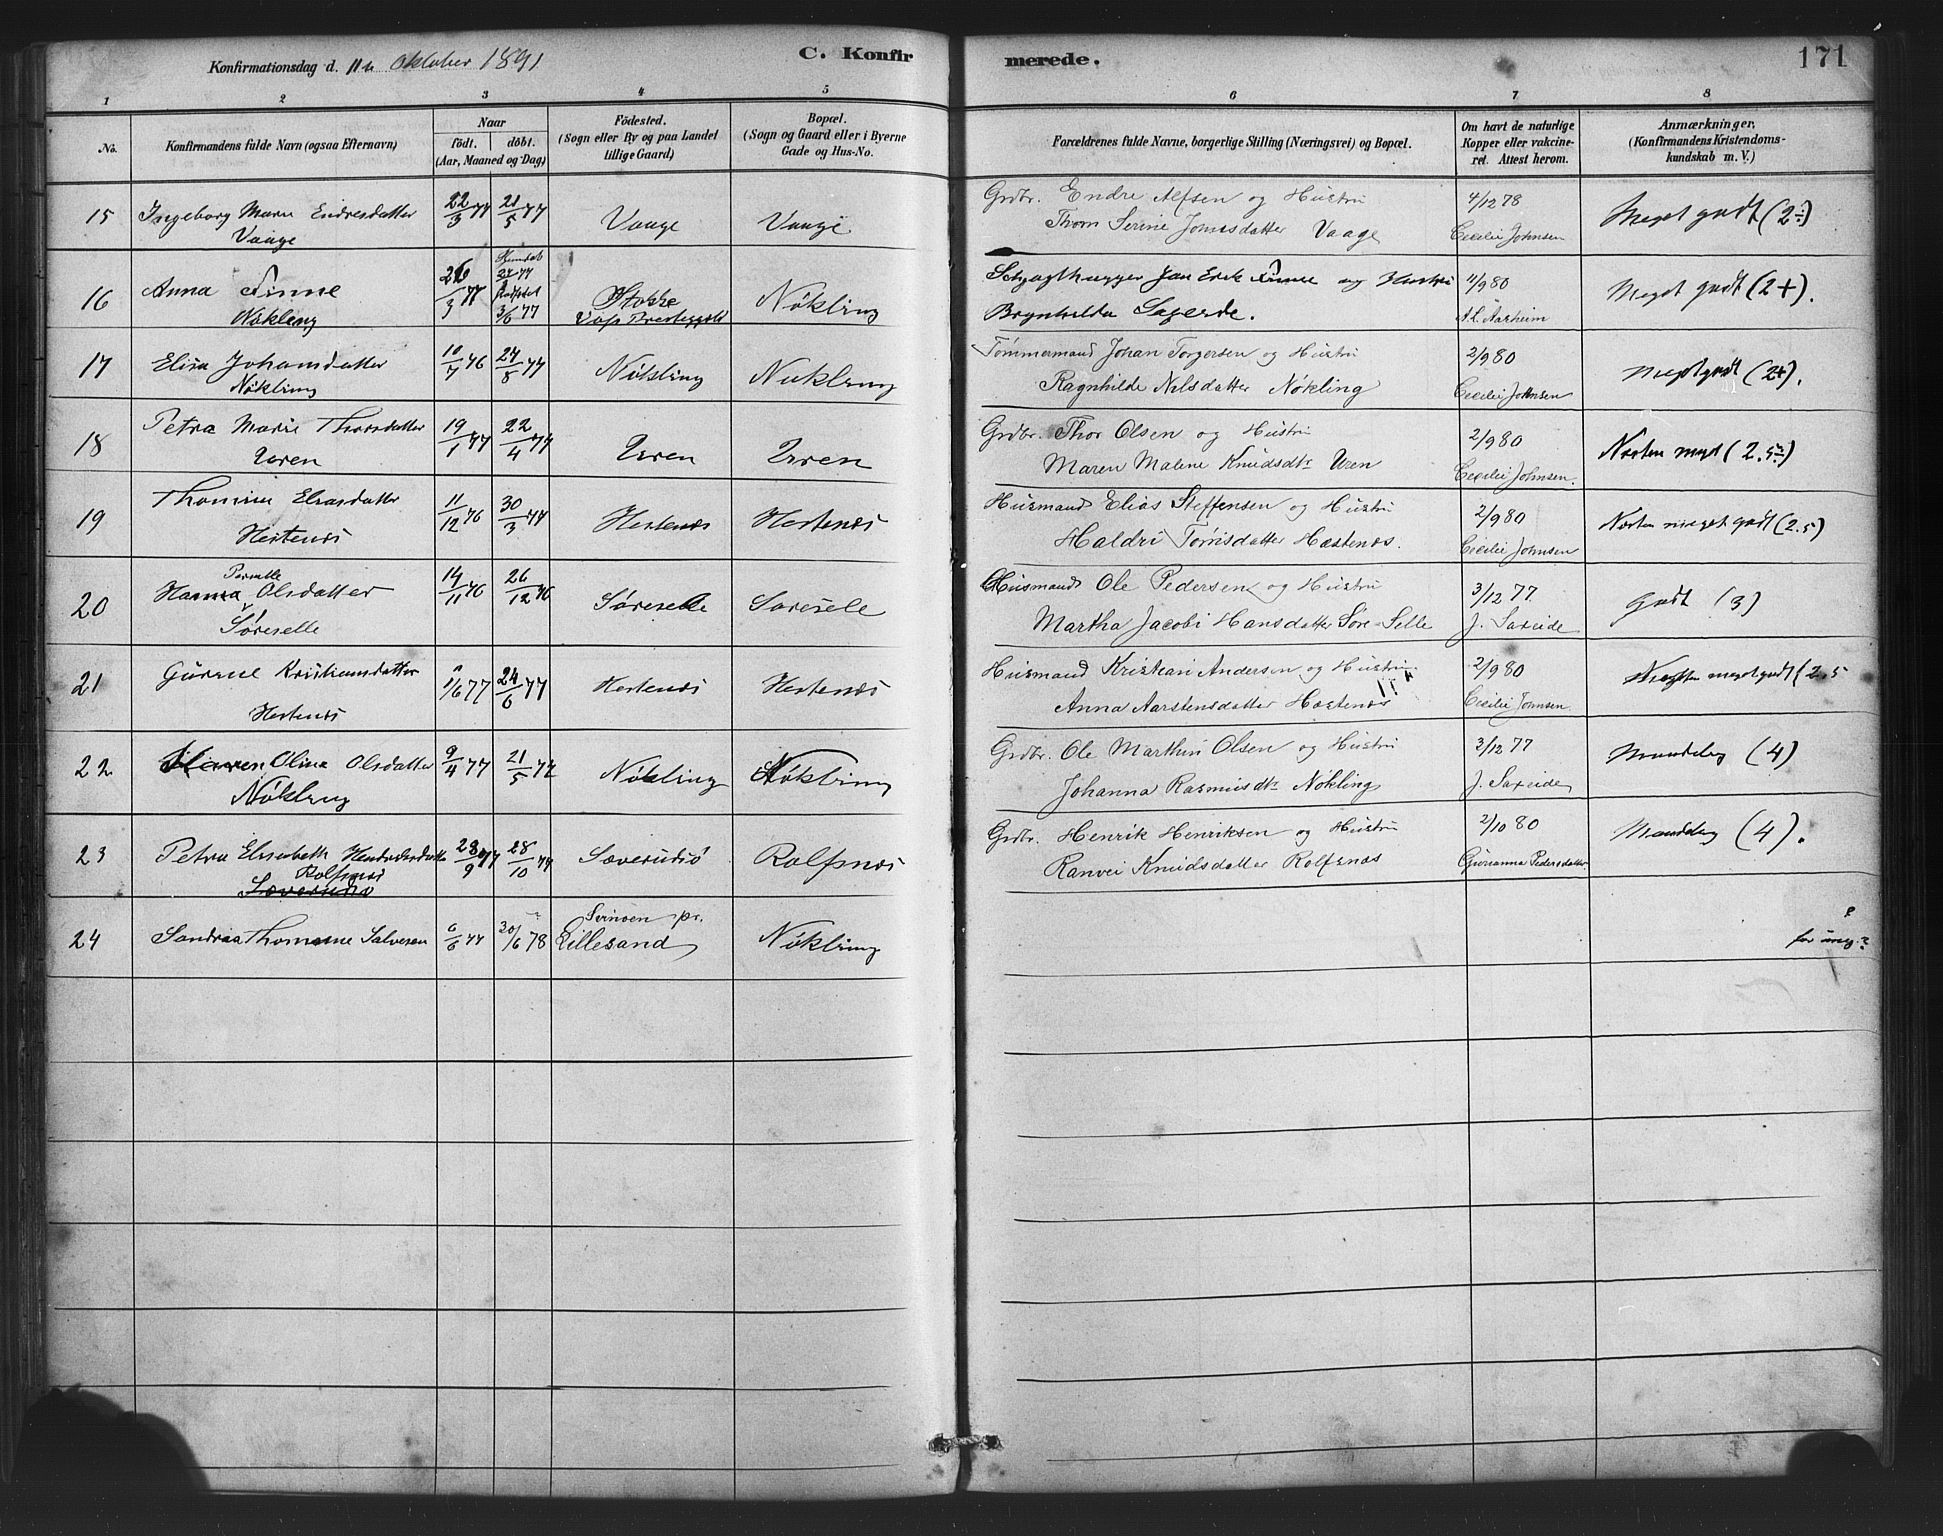 Konfirmationsdag d. 11te Oktober 1891
C. Konfir
merede.
171
1 2 3 4 5 6 7 8
No.
Konfirmandens fulde Navn (ogsaa Efternavn)
Naar
födt. döbt.
(Aar, Maaned og Dag)
Födested.
(Sogn eller By og paa Landet
tillige Gaard)
Bopæl.
(Sogn og Gaard eller i Byerne
Gade og Hus-No.
Forældrenes fulde Navne, borgerlige Stilling (Næringsvei) og Bopæl.
Om havt de naturlige
Kopper eller vakcine-
ret. Attest herom.
Anmærkninger,
(Konfirmandens Kristendoms-
kundskab m. V.)
15 Ingeborg Marie Endresdatter 22/3 77 21/5 77 Vaage Vaage Grdbr. Endre Alfsen og Hustru 4/12 78 Meget godt (2÷)
Vaage Thom Serine Jonasdatter Vaage Cecilie Johnsen
16 Anna Finne 26/3 77 3/6 77 Nökling Jan Erik Finne og Hustru 4/9 80 Meget godt (2+).
Nökling Voss Prestegjeld Brynhilda A. L. Aarheim
17 Elisa Johansdatter 10/7 76 24/8 77 Nökling Nökling Tømmermand Johan Torgersen og Hustru 2/9 80 Meget godt (2+).
Nökling Ragnhilde Nilsdatter Nökling Cecilie Johnsen
18 Petra Marie Thorsdatter 19/1 77 22/4 77 Uren Uren Grdbr. Thor Olsen og Hustru 2/9 80 Næsten meget (2.5)
Uren Maren Malene Knudsdtr Uren Cecilie Johnsen.
19 Thomine Eliasdatter 11/12 76 30/3 77 Hestenæs Hestenæs Husmand Elias Steffensen og Hustru 2/9 80 Næsten meget godt (2.5)
Hestenæs Haldri Tørrisdatter Hæstenæs. Cecilie Johnsen
20 Hanna Pernelle Olsdatter 14/11 76 26/12 76 Söreselle Soreselle Husmand Ole Pedersen og Hustru 3/12 77 Godt (3)
Söreselle Martha Jacobi Hansdatter Søre-Selle J. Saxeide
21 Gurine Kristiansdatter 11/6 77 24/6 77 Hestenæs Hestenæs Husmand Kristian Andersen og Hustru 2/9 80 Næsten meget godt (2.5
Hestenæs Anna Aarstensdatter Hæstenæs Cecilie Johnsen
22 Olina Olsdatter 9/4 77 21/5 77 Nökling Nökling Grdbr. Ole Martin Olsen og Hustru 3/12 77 Maadelig (4)
Nökling Johanna Rasmusdtr Nökling J. Saxeide
23 Petra Elisabeth 28/9 77 28/10 77 Sæverudsö Rolfsnæs Grdbr. Henrik Henriksen og Hustru 2/10 80 Maadelig (4).
Rolfsnæs Ranvei Knudsdatter Rolfsnæs Gurianna Pedersdatter
Sæverudsö
24 Sandraa Thomine Salvesen 6/6 77 30/6 78 pr. Lillesand Nökling ?
for ung?